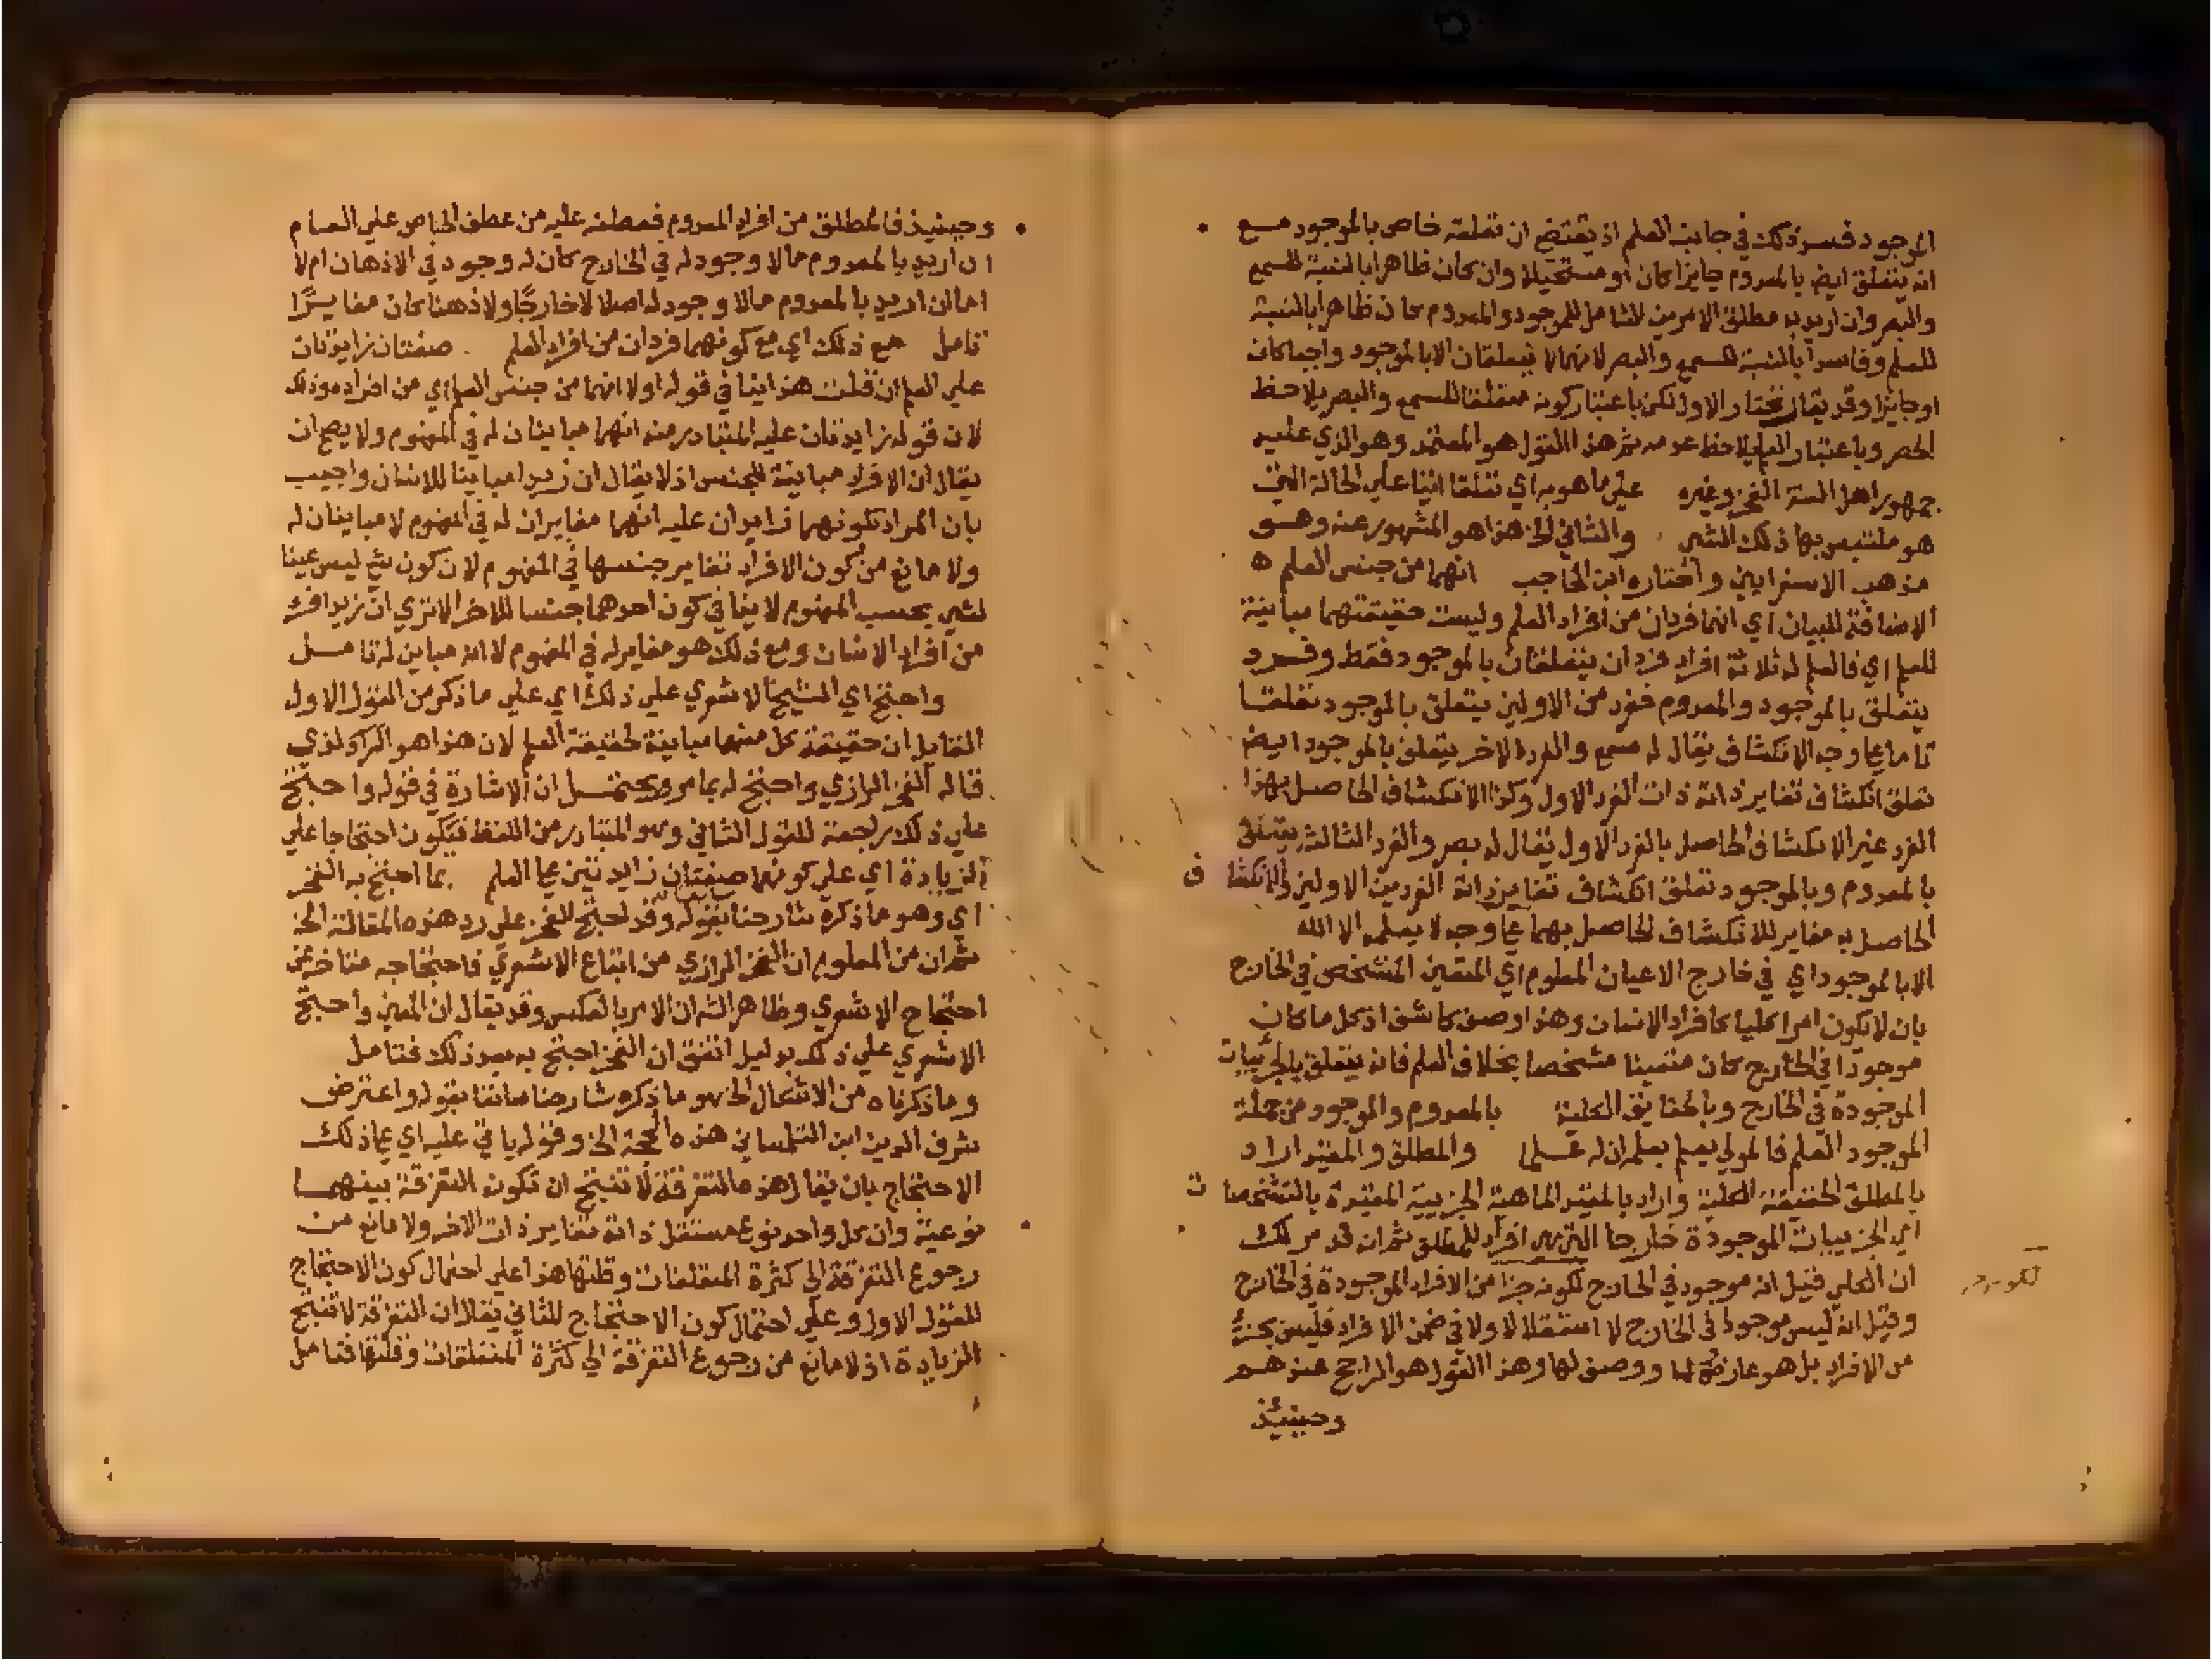 الموجود فسر ذلك في جانب العلم اذ يقتضي ان تعلقه خاص بالموجود مع
انه يتعلق ايض بالمعدوم جايزا كان او مستحيلا وان كان ظاهرا بالنسبة للسمع
والبصر وان اريد به مطلق الامرين الشامل للموجود والمعدوم كان ظاهرا بالنسبة
للعلم وفاسدا بالنسبة للسمع والبصر لانهما لا يتعلقان الا بالموجود واجبا كان
او جايزا وقد يقال نختار الاول لكن باعتبار كونه متعلقا للسمع والبصر يلاحظ
الحصر وباعتبار العلم يلاحظ عدمه ثم هذا القول هو المعتمد وهو الذي عليه
جمهور اهل السنة الفخر وغيره علي ما هو به اي تعلقا اتيا علي الحالة التي
هو ملتبس بها ذلك الشي والثاني الخ هذا هو المشهور عنه وهو
مذهب الاسفرايني واختاره ابن الحاجب انهما من جنس العلم ه
الاضافة للبيان اي انهما فردان من افراد العلم وليست حقيقتهما مباينة
للعلم اي فالعلم له ثلاثة افراد فردان يتعلقان بالموجود فقط وفرد
يتعلق بالموجود والمعدوم ففرد من الاولين يتعلق بالموجود تعلقا
تاما علي وجه الانكشاف يقال له سمع والفرد الاخر يتعلق بالموجود ايض
تعلق انكشاف تغاير ذاته ذات الفرد الاول وكذا الانكشاف الحاصل بهذا
الفرد غير الانكشاف الحاصل بالفرد الاول يقال له بصر والفرد الثالث يتعلق
بالمعدوم وبالموجود تعلق انكشاف تغاير ذاته الفردين الاولين والانكشاف
الحاصل به مغاير للانكشاف الحاصل بهما علي وجه لا يعلمه الا الله
الا بالموجود اي في خارج الاعيان المعلوم اي المتعين المتشخص في الخارج
بان لا يكون امرا كليا كافراد الانسان وهذا وصف كاشف اذ كل ما كان
موجودا في الخارج كان متعينا مشخصا بخلاف العلم فانه يتعلق بالجزييات
الموجودة في الخارج وبالحقايق الكلية بالمعدوم والموجود من جملة
الموجود العلم فالمولي يعلم بعلمه ان له علما والمطلق والمقيد اراد
بالمطلق الحقيقة الكلية واراد بالمقيد الماهية الجزيية المقيدة بالتشخصات
اي الجزييات الموجودة خارجا التي هي افراد للمطلق ثم انه قد مر لك
ان الكلي قيل انه موجود في الخارج لكونه جزا من الافراد الموجودة في الخارج
وقيل انه ليس موجودا في الخارج لا استقلالا ولا في ضمن الافراد فليس بجزء
من الافراد بل هو عارض لها ووصف لها وهذا القول هو الراجح عندهم
وحينيذ
وحينيذ فالمطلق من افراد المعدوم فعطفه عليه من عطف الخاص علي العام
ان اريد بالمعدوم ما لا وجود له في الخارج كان له وجود في الاذهان ام لا
اما ان اريد بالمعدوم ما لا وجود له اصلا لا خارجًا ولا ذهنا كان مغايرًا
تامل مع ذلك اي مع كونهما فردان من افراد العلم صفتان زايدتان
علي العلم ان قلت هذا ينافي قوله اولا انهما من جنس العلم اي من افراده وذلك
لان قوله زايدتان عليه المتبادر منه انهما مباينان له في المفهوم ولا يصح ان
يقال ان الافراد مباينة للجنس اذ لا يقال ان زيدا مباينا للانسان واجيب
بان المراد بكونهما زايدان عليه انهما مغايران له في المفهوم لا مباينان له
ولا مانع من كون الافراد تغاير جنسها في المفهوم لان كون شي ليس عينا
لشي بحسب المفهوم لا ينافي كون احدهما جنسا للاخر الا تري ان زيدا فرد
من افراد الانسان ومع ذلك هو مغاير له في المفهوم لا انه مباين له تامل
واحتج اي الشيخ الاشعري علي ذلك اي علي ما ذكر من القول الاول
القايل ان حقيقة كل منهما مباينة لحقيقة العلم لان هذا هو الذي
قاله الفخر الرازي واحتج له بما مر ويحتمل ان الاشارة في قوله واحتج
علي ذلك راجعة للقول الثاني وهو المتبادر من اللفظ فيكون احتجاجا علي
الزيادة اي علي كونهما صفتان زايدتين علي العلم بما احتج به الفخر
اي وهو ما ذكره شارحنا بقوله وقد احتج الفخر علي رد هذه المقالة الخ
ثم ان من المعلوم ان الفخر الرازي من اتباع الاشعري فاحتجاجه متاخر عن
احتجاج الاشعري وظاهر الش ان الامر بالعكس وقد يقال ان المعني واحتج
الاشعري علي ذلك بدليل اتفق ان الفخر احتج به بعد ذلك فتامل
وما ذكرناه من الاشكال الخ هو ما ذكره شارحنا سابقا بقوله واعترض
شرف الدين ابن التلمساني هذه الحجة الخ وقوله ياتي عليه اي علي ذلك
الاحتجاج بان يقال هذه التفرقة لا تنتج ان تكون التفرقة بينهما
نوعية وان كل واحد نوع مستقل ذاته تغاير ذات الاخر ولا مانع من
رجوع التفرقة الي كثرة المتعلقات وقلتها هذا علي احتمال كون الاحتجاج
للقول الاول وعلي احتمال كون الاحتجاج للثاني يقال ان التفرقة لا تنتج
الزيادة اذ لا مانع من رجوع التفرقة الي كثرة المتعلقات وقلتها فتامل